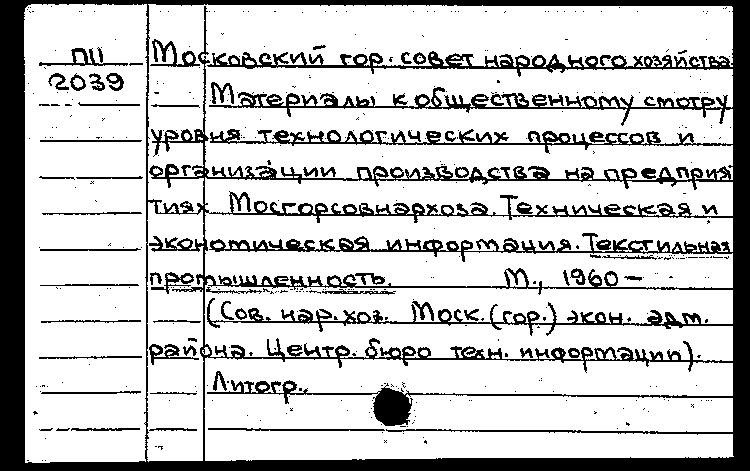 П11
2039
Московский гор. совет народного хозяйства
Материалы к общественному смотру
уровня технологических процессов и
организации производства на предприя
тиях Мосгорсовнархоза. Техническая и
экономическая информация. Текстильная
промышленность. М., 1960 –
(Сов. нар. хоз. Моск. (гор.) экон. адм.
района. Центр. бюро техн. информации).
Литогр.